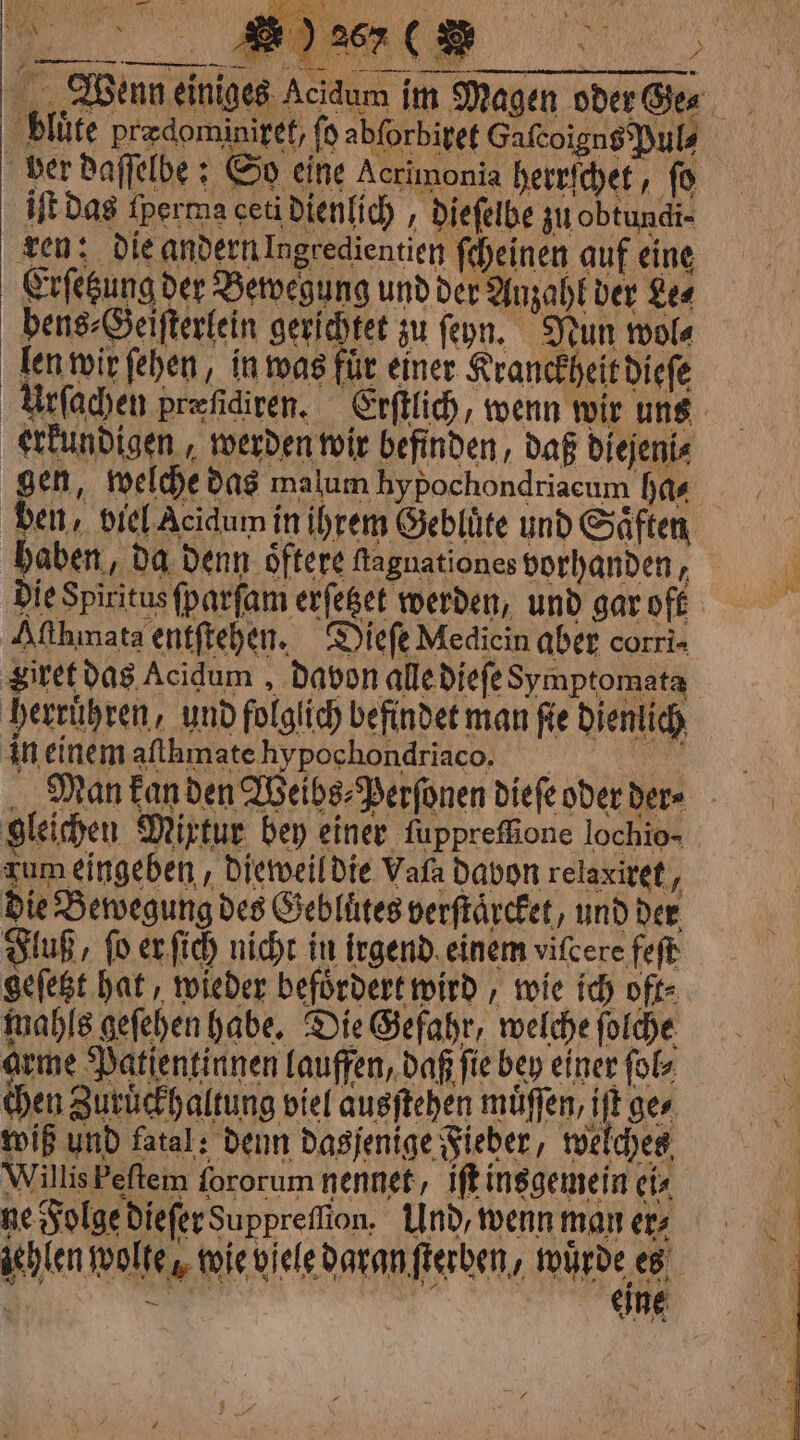 ) 267 (
Wenn einiges Acidum im Magen oder Ge⸗
blüte prædominiret, ſo abſorbiret Gaſcoigns Pul⸗
ver daſſelbe: So eine Acrimonia herrſchet, ſo
iſt das ſperma ceti dienlich, dieſelbe zu obtundi-
ren: die andern Ingredientien ſcheinen auf eine
Erſetzung der Bewegung und der Anzahl der Le⸗
bens⸗Geiſterlein gerichtet zu ſeyn. Nun wol⸗
len wir ſehen, in was für einer Kranckheit dieſe
Urſachen præſidiren. Erſtlich, wenn wir uns
erkundigen, werden wir befinden, daß diejeni⸗
gen, welche das malum hypochondriacum ha⸗
ben, viel Acidum in ihrem Geblüte und Säften
haben, da denn öftere ſtagnationes vorhanden,
die Spiritus ſparſam erſetzet werden, und gar oft
Aſthmata entſtehen. Dieſe Medicin aber corri-
giret das Acidum, davon alle dieſe Symptomata
herrühren, und folglich befindet man ſie dienlich
in einem aſthmate hypochondriaco.
Man kan den Weibs⸗Perſonen dieſe oder der⸗
gleichen Mixtur bey einer ſuppreſſione lochio-
rum eingeben, dieweil die Vaſa davon relaxiret,
die Bewegung des Geblütes verſtärcket, und der
Fluß, ſo er ſich nicht in irgend einem viſcere feſt
geſetzt hat, wieder befördert wird, wie ich oft⸗
mahls geſehen habe. Die Gefahr, welche ſolche
arme Patientinnen lauffen, daß ſie bey einer ſol⸗
chen Zurückhaltung viel ausſtehen müſſen, iſt ge⸗
wiß und fatal: denn dasjenige Fieber, welches
Willis Peſtem ſororum nennet, iſt insgemein ei⸗
ne Folge dieſer Suppreſſion. Und, wenn man er⸗
zehlen wolte, wie viele daran ſterben, würde es
eine